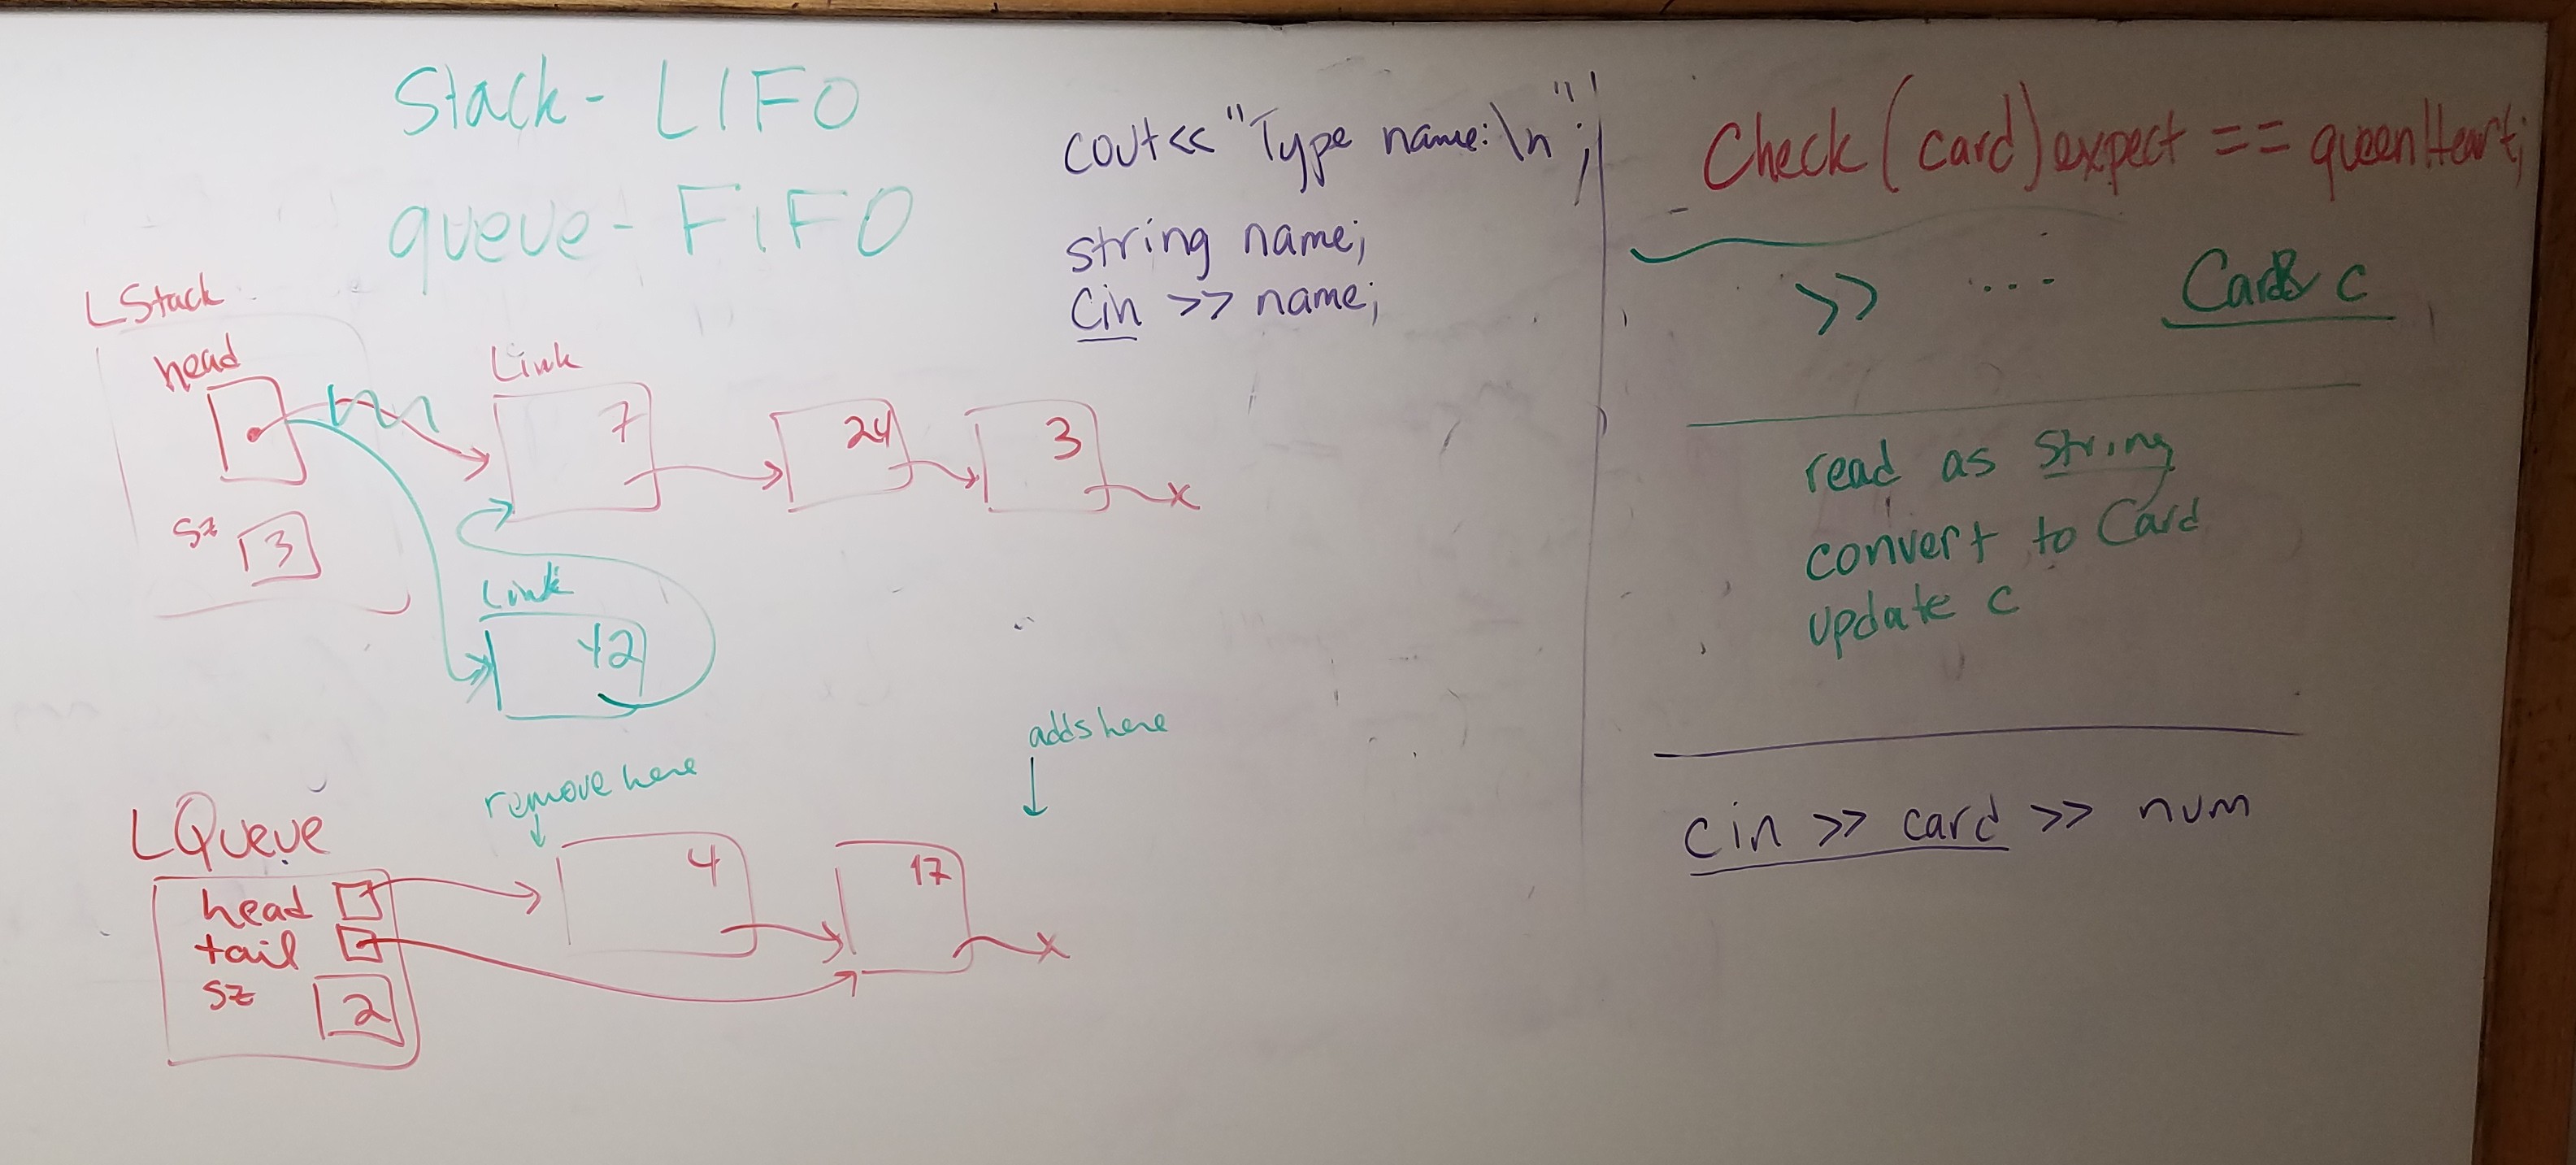 Stack - LIFO
queue - FIFO
LStack
head
Link
7
24
3
x
sz
3
Link
42
remove here
adds here
LQueue
head
tail
sz
2
4
17
x
cout << "Type name:\n";
string name;
cin >> name;
Check (card) expect == queenHeart;
>> .... Card& c
read as string
convert to Card
update c
cin >> card >> num